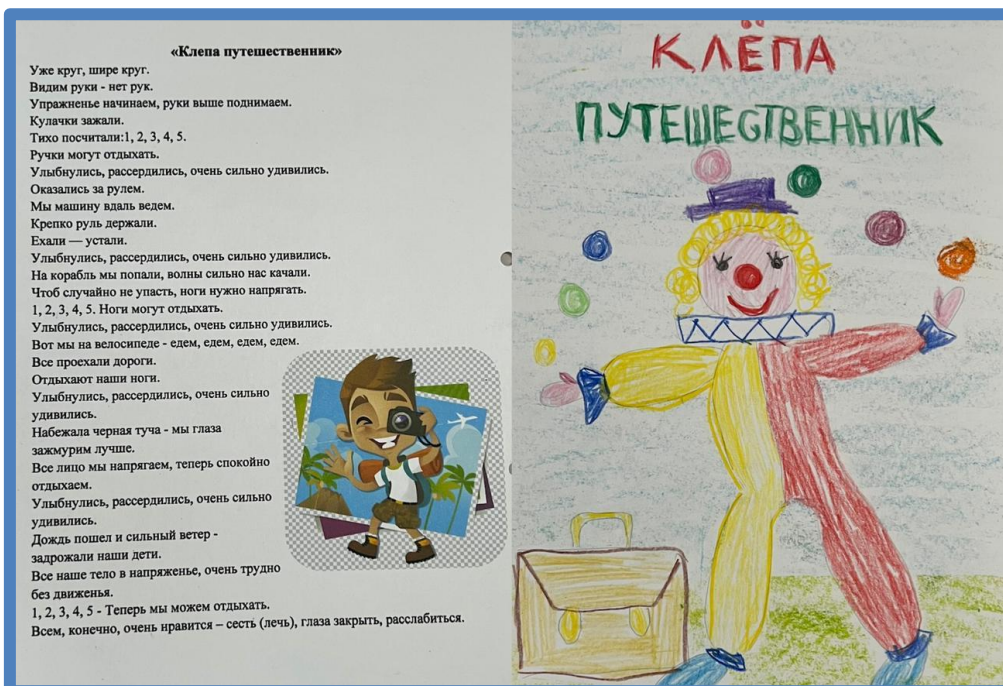 «Клепа путешественник»
Уже круг, шире круг.
Видим руки - нет рук.
Упражненье начинаем, руки выше поднимаем.
Кулачки зажали.
Тихо посчитали:1, 2, 3, 4, 5.
Ручки могут отдыхать.
Улыбнулись, рассердились, очень сильно удивились.
Оказались за рулем.
Мы машину вдаль ведем.
Крепко руль держали.
Ехали — устали.
Улыбнулись, рассердились, очень сильно удивились.
На корабль мы попали, волны сильно нас качали.
Чтоб случайно не упасть, ноги нужно напрягать.
1, 2, 3, 4, 5. Ноги могут отдыхать.
Улыбнулись, рассердились, очень сильно удивились.
Вот мы на велосипеде - едем, едем, едем, едем.
Все проехали дороги.
Отдыхают наши ноги.
Улыбнулись, рассердились, очень сильно
удивились.
Набежала черная туча - мы глаза
зажмурим лучше.
Все лицо мы напрягаем, теперь спокойно
отдыхаем.
Улыбнулись, рассердились, очень сильно
удивились.
Дождь пошел и сильный ветер -
задрожали наши дети.
Все наше тело в напряженье, очень трудно
без движенья.
1, 2, 3, 4, 5 - Теперь мы можем отдыхать.
Всем, конечно, очень нравится – сесть (лечь), глаза закрыть, расслабиться.
КЛЁПА
ПУТЕШЕСТВЕННИК